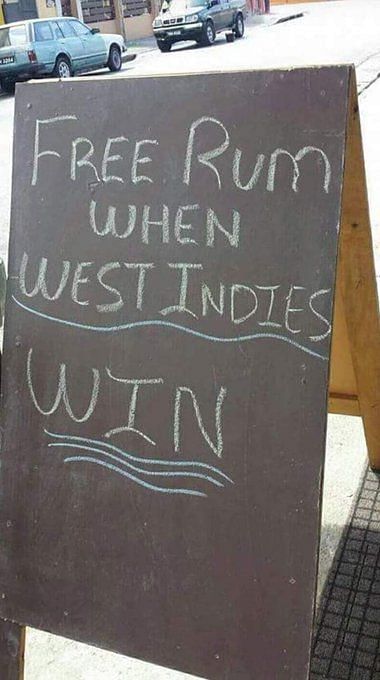 FREE RUM
WHEN
WEST INDIES
WIN